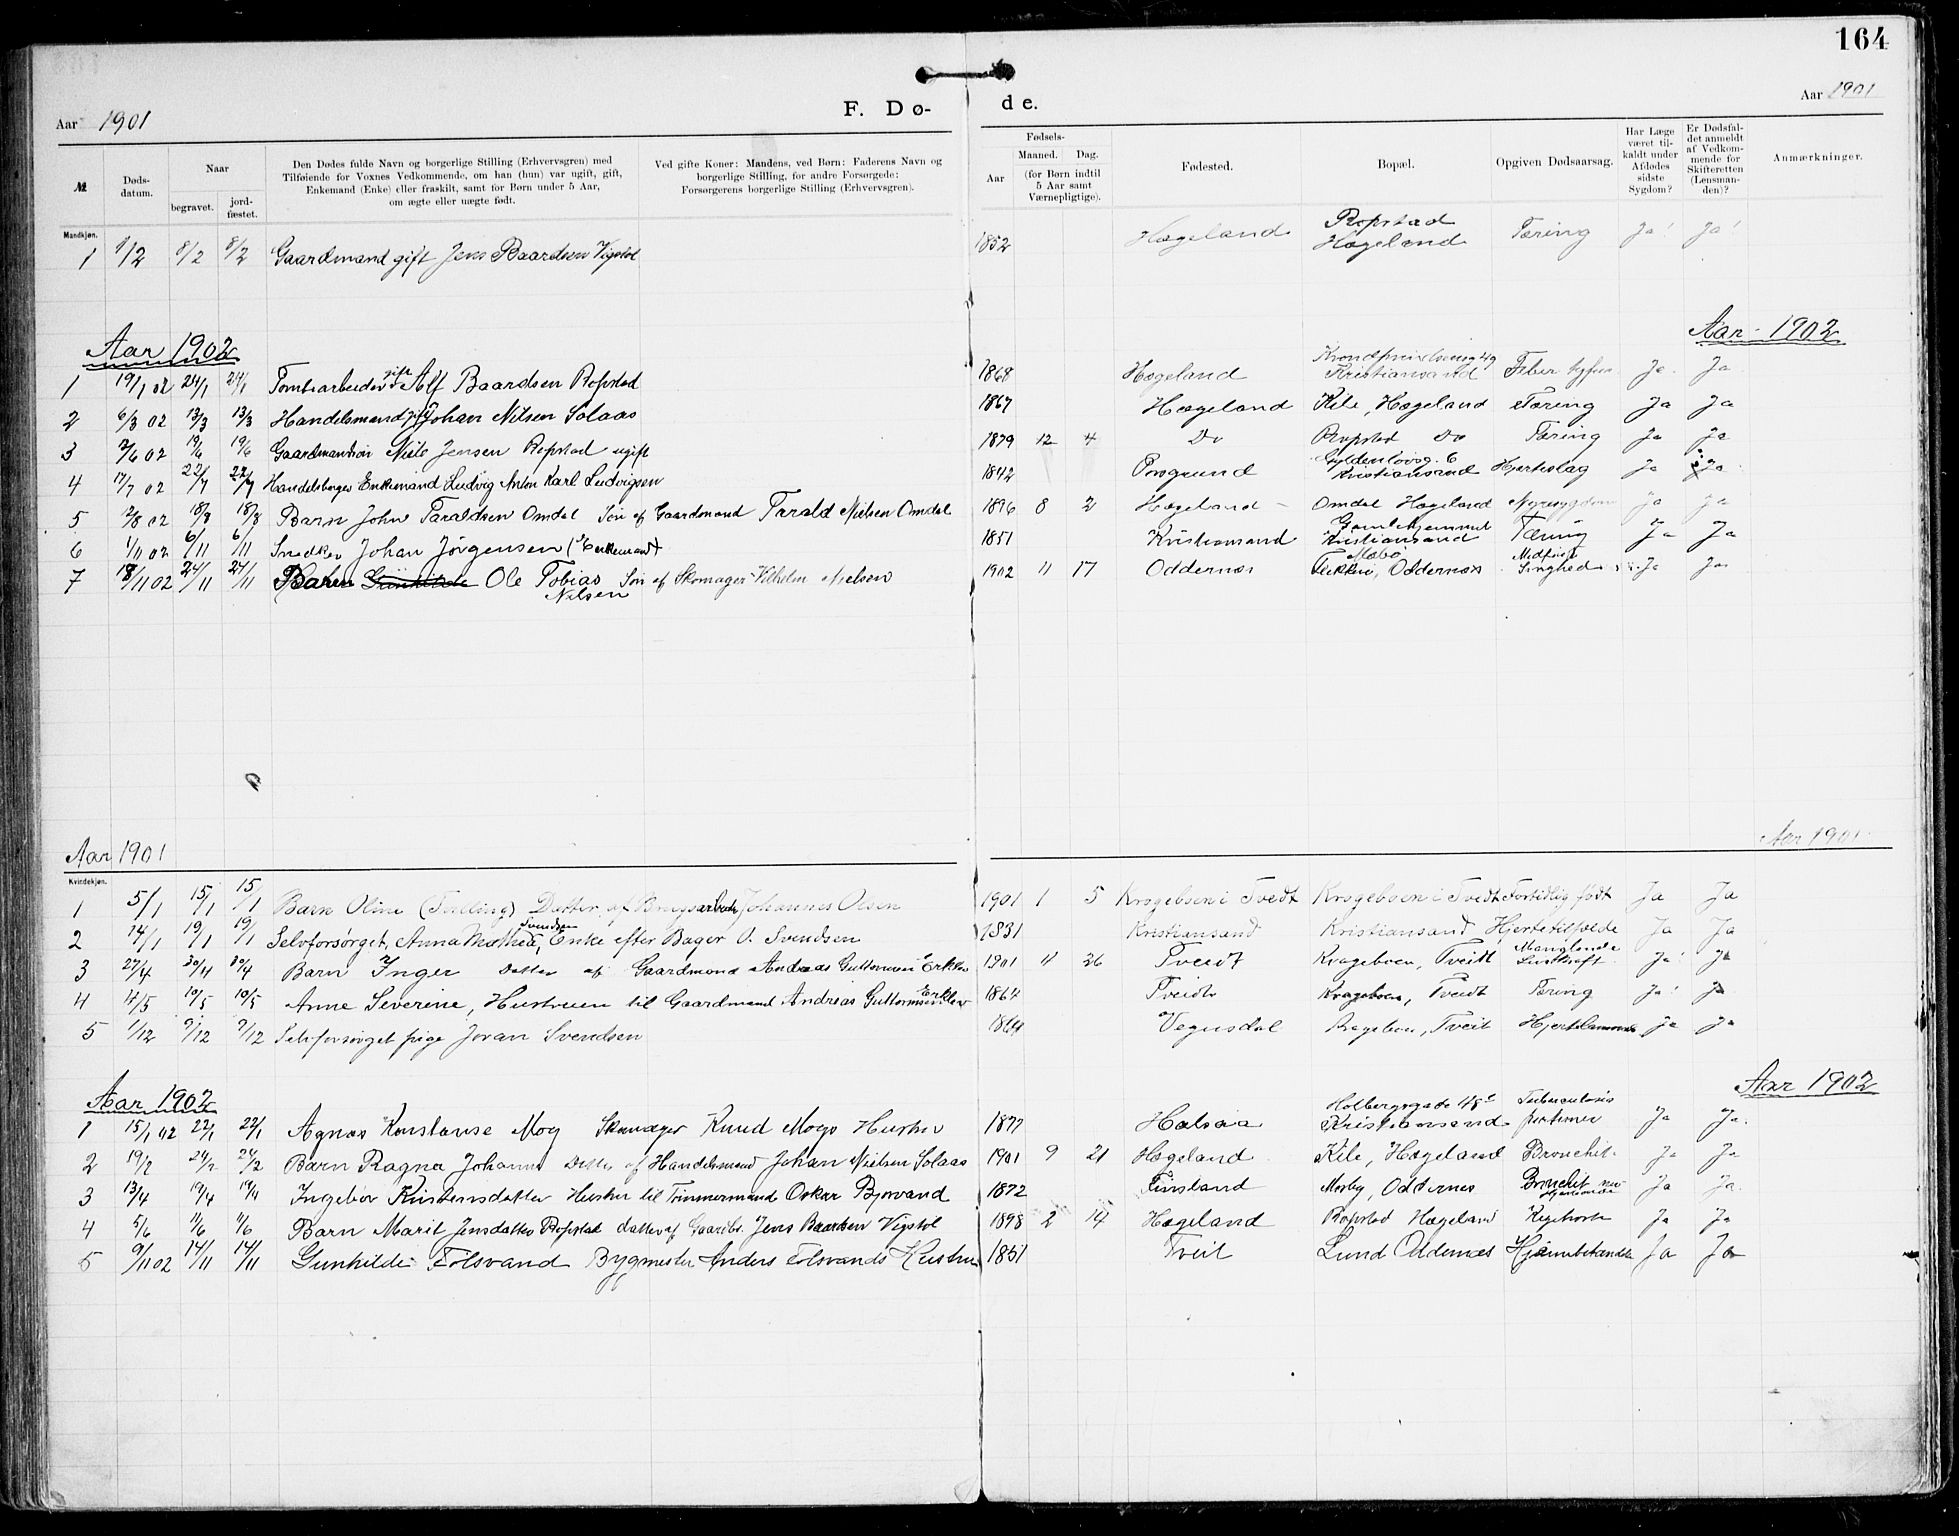 164
Aar 1901
F. Dø-
de.
Aar 1901
№
Døds-datum.
Naar
begravet.
jord-fæstet.
Den Dødes fulde Navn og borgerlige Stilling (Erhvervsgren) med
Tilføiende for Voxnes Vedkommende, om han (hun) var ugift, gift,
Enkemand (Enke) eller fraskilt, samt for Børn under 5 Aar,
om ægte eller uægte født.
Ved gifte Koner: Mandens, ved Børn: Faderens Navn og
borgerlige Stilling, for andre Forsørgede:
Forsørgerens borgerlige Stilling (Erhvervsgren).
Fødsels-
Aar
Maaned. Dag.
(for Børn indtil
5 Aar samt
Værnepligtige).
Fødested.
Bopæl.
Opgiven Dødsaarsag.
Har Læge
været til-
kaldt under
Afdødes
sidste
Sygdom?
Er Dødsfal-
det anmeldt
af Vedkom-
mende for
Skifteretten
(Lensman-
den)?
Anmærkninger.
Mandkjøn.
1 1/2 8/2 8/2 Gaardmand gift Jens Baardsen Vigstøl 1852 Hægeland Ropstad Hægeland Tæring Ja! Ja!
Aar 1902
Aar 1902
1 19/1 02 24/1 24/1 Tomtearbeider gift Alf Baardsen Ropstad 1868 Hægeland Kristiansand Feber Ja Ja
2 6/3 02 13/3 13/3 Handelsmand gift Johan Nilsen Solaas 1867 Hægeland Kile, Hægeland Tæring Ja Ja
3 7/6 02 19/6 19/6 Gaardmandsøn Niels Jensen Ropstad ugift 1879 12 4 Do Ropstad Do Tæring Ja Ja
4 17/7 02 22/7 22/7 Handelsborger Enkemand Ludvig Anton Karl Ludvigsen 1842 Porsgrund Gyldenløvsg. 6 Kristiansand Hjerteslag Ja Ja
5 2/8 02 18/8 18/8 Barn John Taraldsen Omdal Søn af Gaardmand Tarald Nielsen Omdal 1896 8 2 Hægeland Omdal Hægeland Nyresygdom Ja Ja
6 1/11 02 6/11 6/11 Snedker Johan Jørgensen (Enkemand) 1851 Kristiansand Gamlehjemmet Kristiansand Tæring Ja Ja
7 18/11 02 24/11 24/11 Barn Ole Tobias Nilsen Søn af Skomager Vilhelm Nielsen 1902 11 17 Oddernæs Flekkerø, Oddernæs Ja Ja
Aar 1901
Aar 1901
Kvindekjøn.
1 5/1 15/1 15/1 Barn Oline (Tvilling) Datter af Brugsarbeid. Johannes Olsen 1901 1 5 Krageboen i Tvedt Krageboen i Tvedt Fortidlig født Ja Ja
2 14/1 19/1 19/1 Selvforsørget, Anna Mathea Svendsen, Enke efter Bager O. Svendsen 1831 Kristiansand Kristiansand Hjertetilfælde Ja Ja
3 27/4 30/4 30/4 Barn Inger Datter af Gaardmand Andreas Guttormsen Erklev 1901 4 26 Tveidt Krageboen, Tveit Manglende Livskraft Ja! Ja
4 4/5 10/5 10/5 Anne Severine, Hustruen til Gaardmand Andreas Guttormsen Erklev 1864 Tveidt Krageboen, Tveidt Tæring Ja! Ja
5 1/12 9/12 9/12 Selvforsørget pige Joran Svendsen Vegusdal Krageboen, Tveit Ja Ja
Aar 1902
Aar 1902
1 15/1 02 22/1 22/1 Agnæs Konstanse Mog Skomager Knud Mogs Hustru 1877 Halsaa Holbergsgade Kristiansand Tuberculosis Ja Ja.
2 19/2 24/2 24/2 Barn Ragna Johanne Datter af Handelsmand Johan Nielsen Solaas 1901 9 21 Hægeland Kile, Hægeland Bronchit Ja Ja
3 13/4 19/4 19/4 Ingebor Kristensdatter Hustru til Tømmermand Oskar Bjorvand 1872 Finsland Mosby, Oddernes Bronchit Ja Ja.
4 5/6 11/6 11/6 Barn Marit Jensdatter Ropstad datter af Gaardbr. Jens Baardsen Vigstøl 1898 2 14 Hægeland Ropstad Hægeland Kighoste Ja Ja
5 9/11 02 14/11 14/11 Gunhilde Folsvand Bygmester Anders Folsvands Hustru 1851 Tveit Lund Oddernes Ja Ja